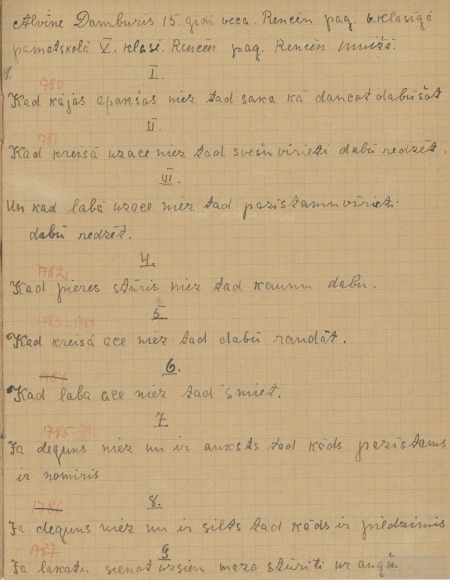 Alvīne Damburis 15. gidi veca. Rencēn pag. 6. klasīgā
pamatskolā V. klasi. Rencēn pag. Rencēn muižā.
1.
780 I.
Kad kājas apakšas niez tad saka kā dancot dabūšot
781 II.
Kad kreisā uzace niez tad svešu vīrieti dabū redzēt.
III.
Un kad labā uzace niez tad pazīstamu vīrieti
dabū redzēt.
782. 4.
Kad pieres stūris niez tad kaunu dabū.
783-784 5.
Kad kreisā ace niez tad dabū raudāt.
784 6.
Kad laba ace niez tad smiet.
785 7
Ja deguns niez un ir auksts tad kāds pazīstams
ir nomiris
786 8.
Ja deguns niez un ir silts tad kāds ir piedzimis
787 9
Ja lakatu sienot uzsien meza stūrīti uz augšu